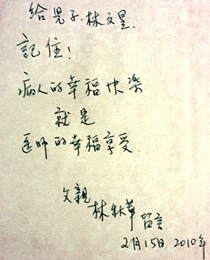 給兒子.林文星.
記住!
病人的幸福快樂
就是
医師的幸福享受
父親 林秋草 留言
2月15日 2010年